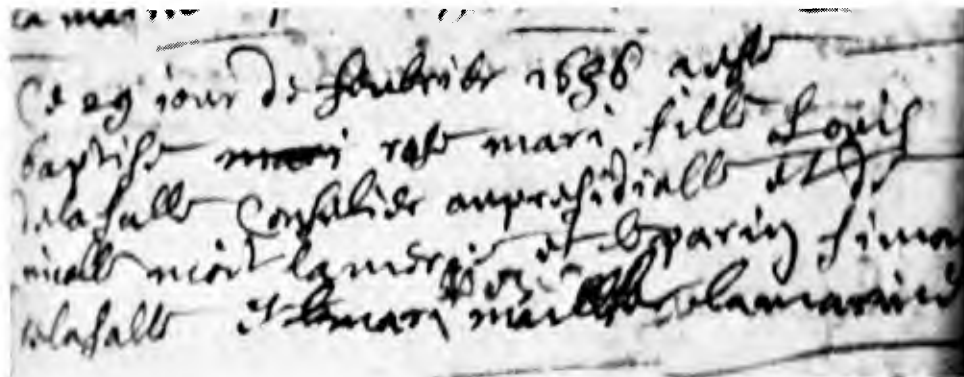 Ce 29 iour de feubrier 1656 a este
baptise rose mari fille Louis
delasalle Conselier aupresidialle et de
nicolle moët la mere et le parin simon
delasalle et mari la marinne